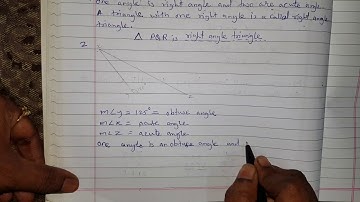 one angle is right angle and two are acute angle
A triangle with one right angle is a called right angle
triangle.
△ PQR is right angle triangle
2
m∠y = 125° = obtuse angle
m∠x = acute angle
m∠z = acute angle
one angle is an obtuse angle and